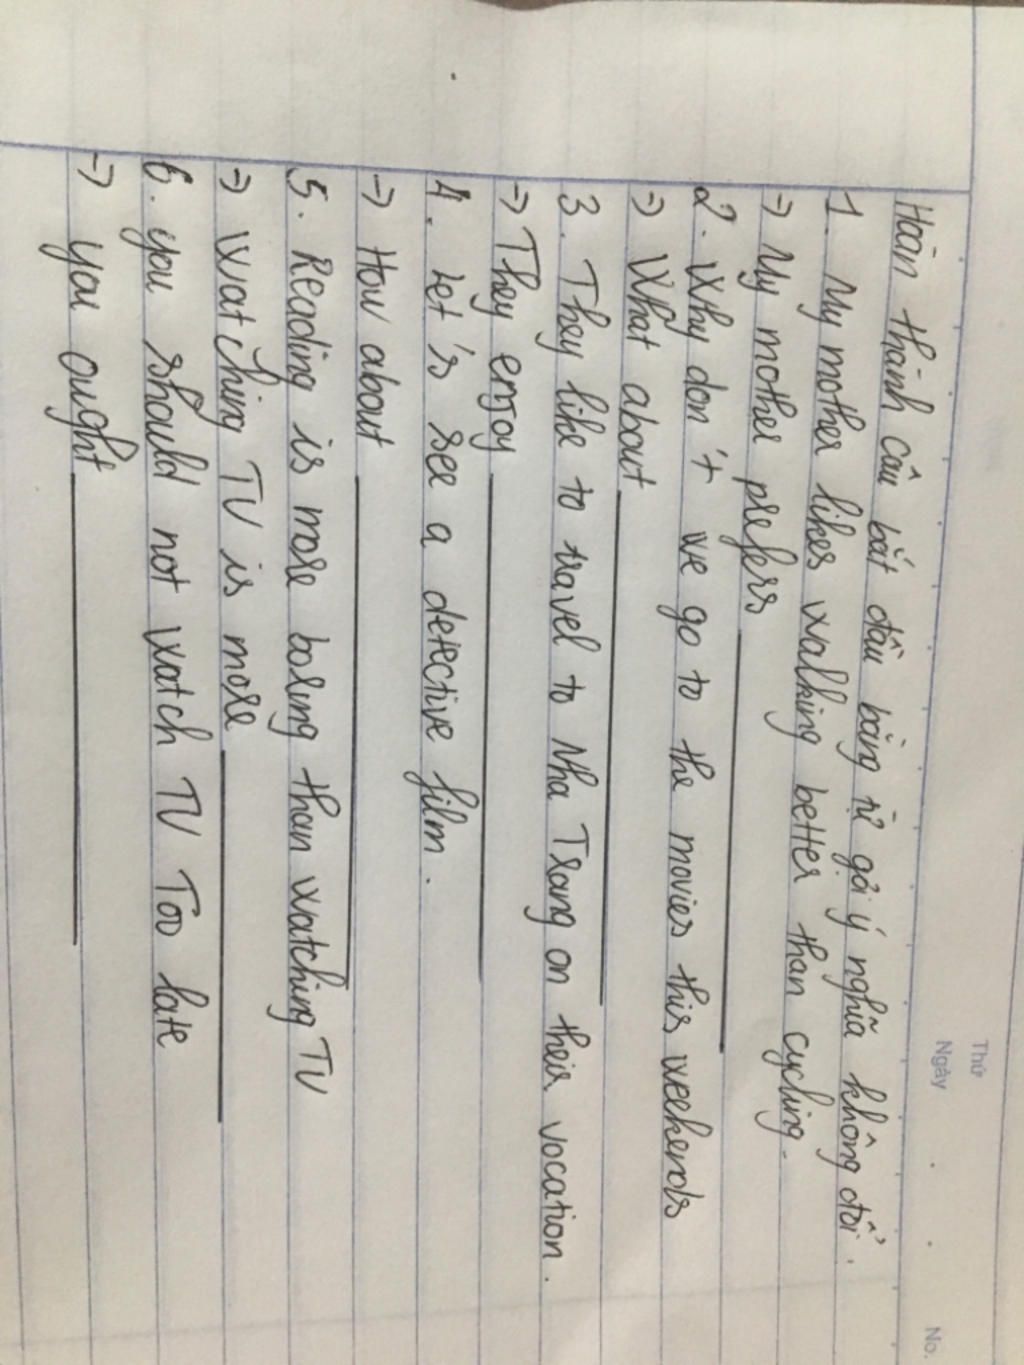 Thứ
Ngày
No.
Hoàn thành câu bắt đầu bằng từ gợi ý nghĩa không đổi.
1. My mother likes walking better than cycling.
=> My mother prefers
2. Why don't we go to the movies this weekends
=> What about
3. They like to travel to Nha Trang on their vocation.
=> They enjoy
4. Let's see a detective film.
=> How about
5. Reading is more boring than watching TV
=> Watching TV is more
6. You should not watch TV Too late
=> You ought